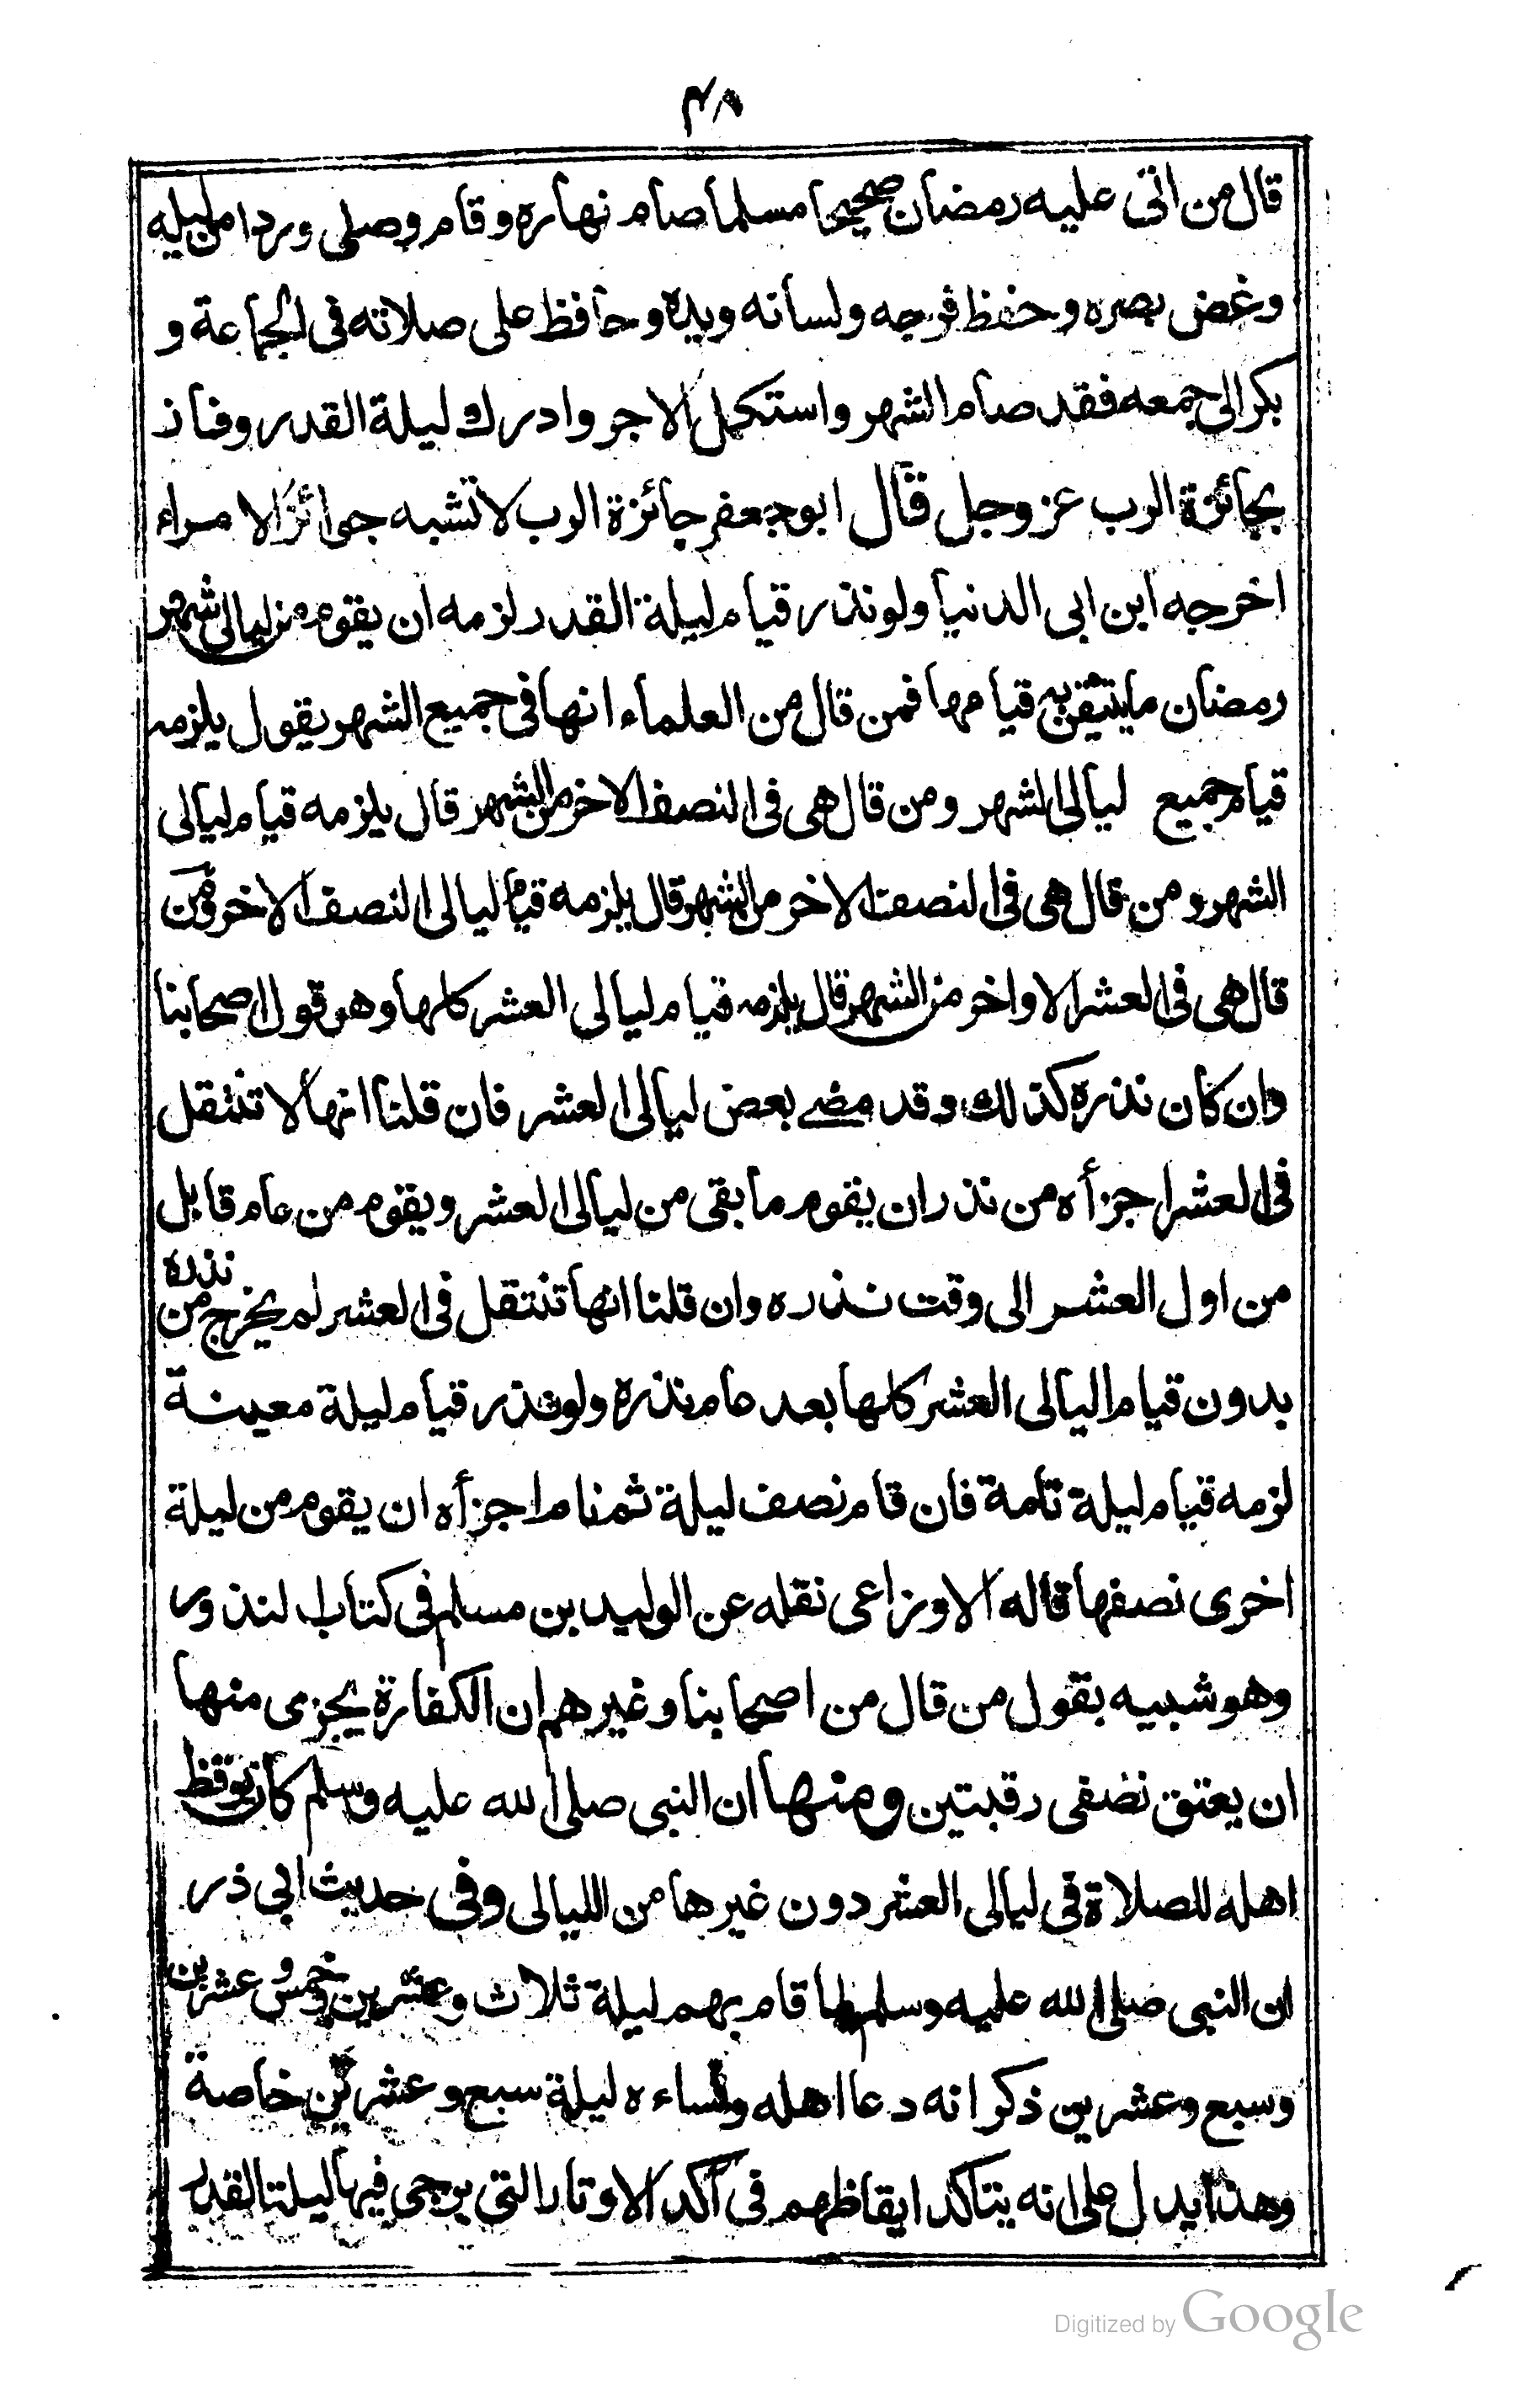 ٤٨
قال من اتى عليه رمضان صحيحا مسلما صام نهاره وقام وصلى وردا من ليله
وغض بصره وحفظ فرجه ولسانه ويده وحافظ على صلاته في الجماعة و
بكر الى جمعه فقد صام الشهر واستكمل الاجر وادرك ليلة القدر وفاز
بجائزة الرب عز وجل قال ابوجعفر جائزة الرب لا تشبه جوائز الامراء
اخرجه ابن ابى الدنيا ولو نذر قيام ليلة القدر لزمه ان يقوم من ليالى شهر
رمضان ما يتيقن به قيامها فمن قال من العلماء انها في جميع الشهر يقول يلزمه
قيام جميع ليالى الشهر ومن قال هى في النصف الاخر من الشهر قال يلزمه قيام ليالى
الشهر ومن قال هى في النصف الاخر من الشهر قال يلزمه قيام ليالى النصف الاخر ومن
قال هى في العشر الاواخر من الشهر قال يلزمه قيام ليالى العشر كلها وهو قول اصحابنا
وان كان نذره كذلك وقد مضے بعض ليالى العشر فان قلنا انها لا تنتقل
في العشر اجزأه من نذر ان يقوم ما بقى من ليالى العشر ويقوم من عام قابل
من اول العشر الى وقت نذره وان قلنا انها تنتقل في العشر لم يخرج من نذره
بدون قيام اليالى العشر كلها بعد عام نذره ولو نذر قيام ليلة معينة
لزمه قيام ليلة تامة فان قام نصف ليلة ثم نام اجزأه ان يقوم من ليلة
اخرى نصفها قاله الاوزاعى نقله عن الوليد بن مسلم في كتاب لنذور
وهو شبيه بقول من قال من اصحابنا وغيرهم ان الكفارة يجزى منها
ان يعتق نصفى رقبتين ومنها ان النبى صلى الله عليه وسلم كان يوقظ
اهله للصلاة في ليالى العشر دون غيرها من الليالى وفي حديث ابي ذر
ان النبى صلى الله عليه وسلم لما قام بهم ليلة ثلاث وعشرين وخمس وعشرين
وسبع وعشرين ذكر انه دعا اهله ونساءه ليلة سبع وعشرين خاصة
وهذا يدل على انه يتاكد ايقاظهم في آكد الاوتار التي يرجى فيها ليلة القدر
Digitized by Google